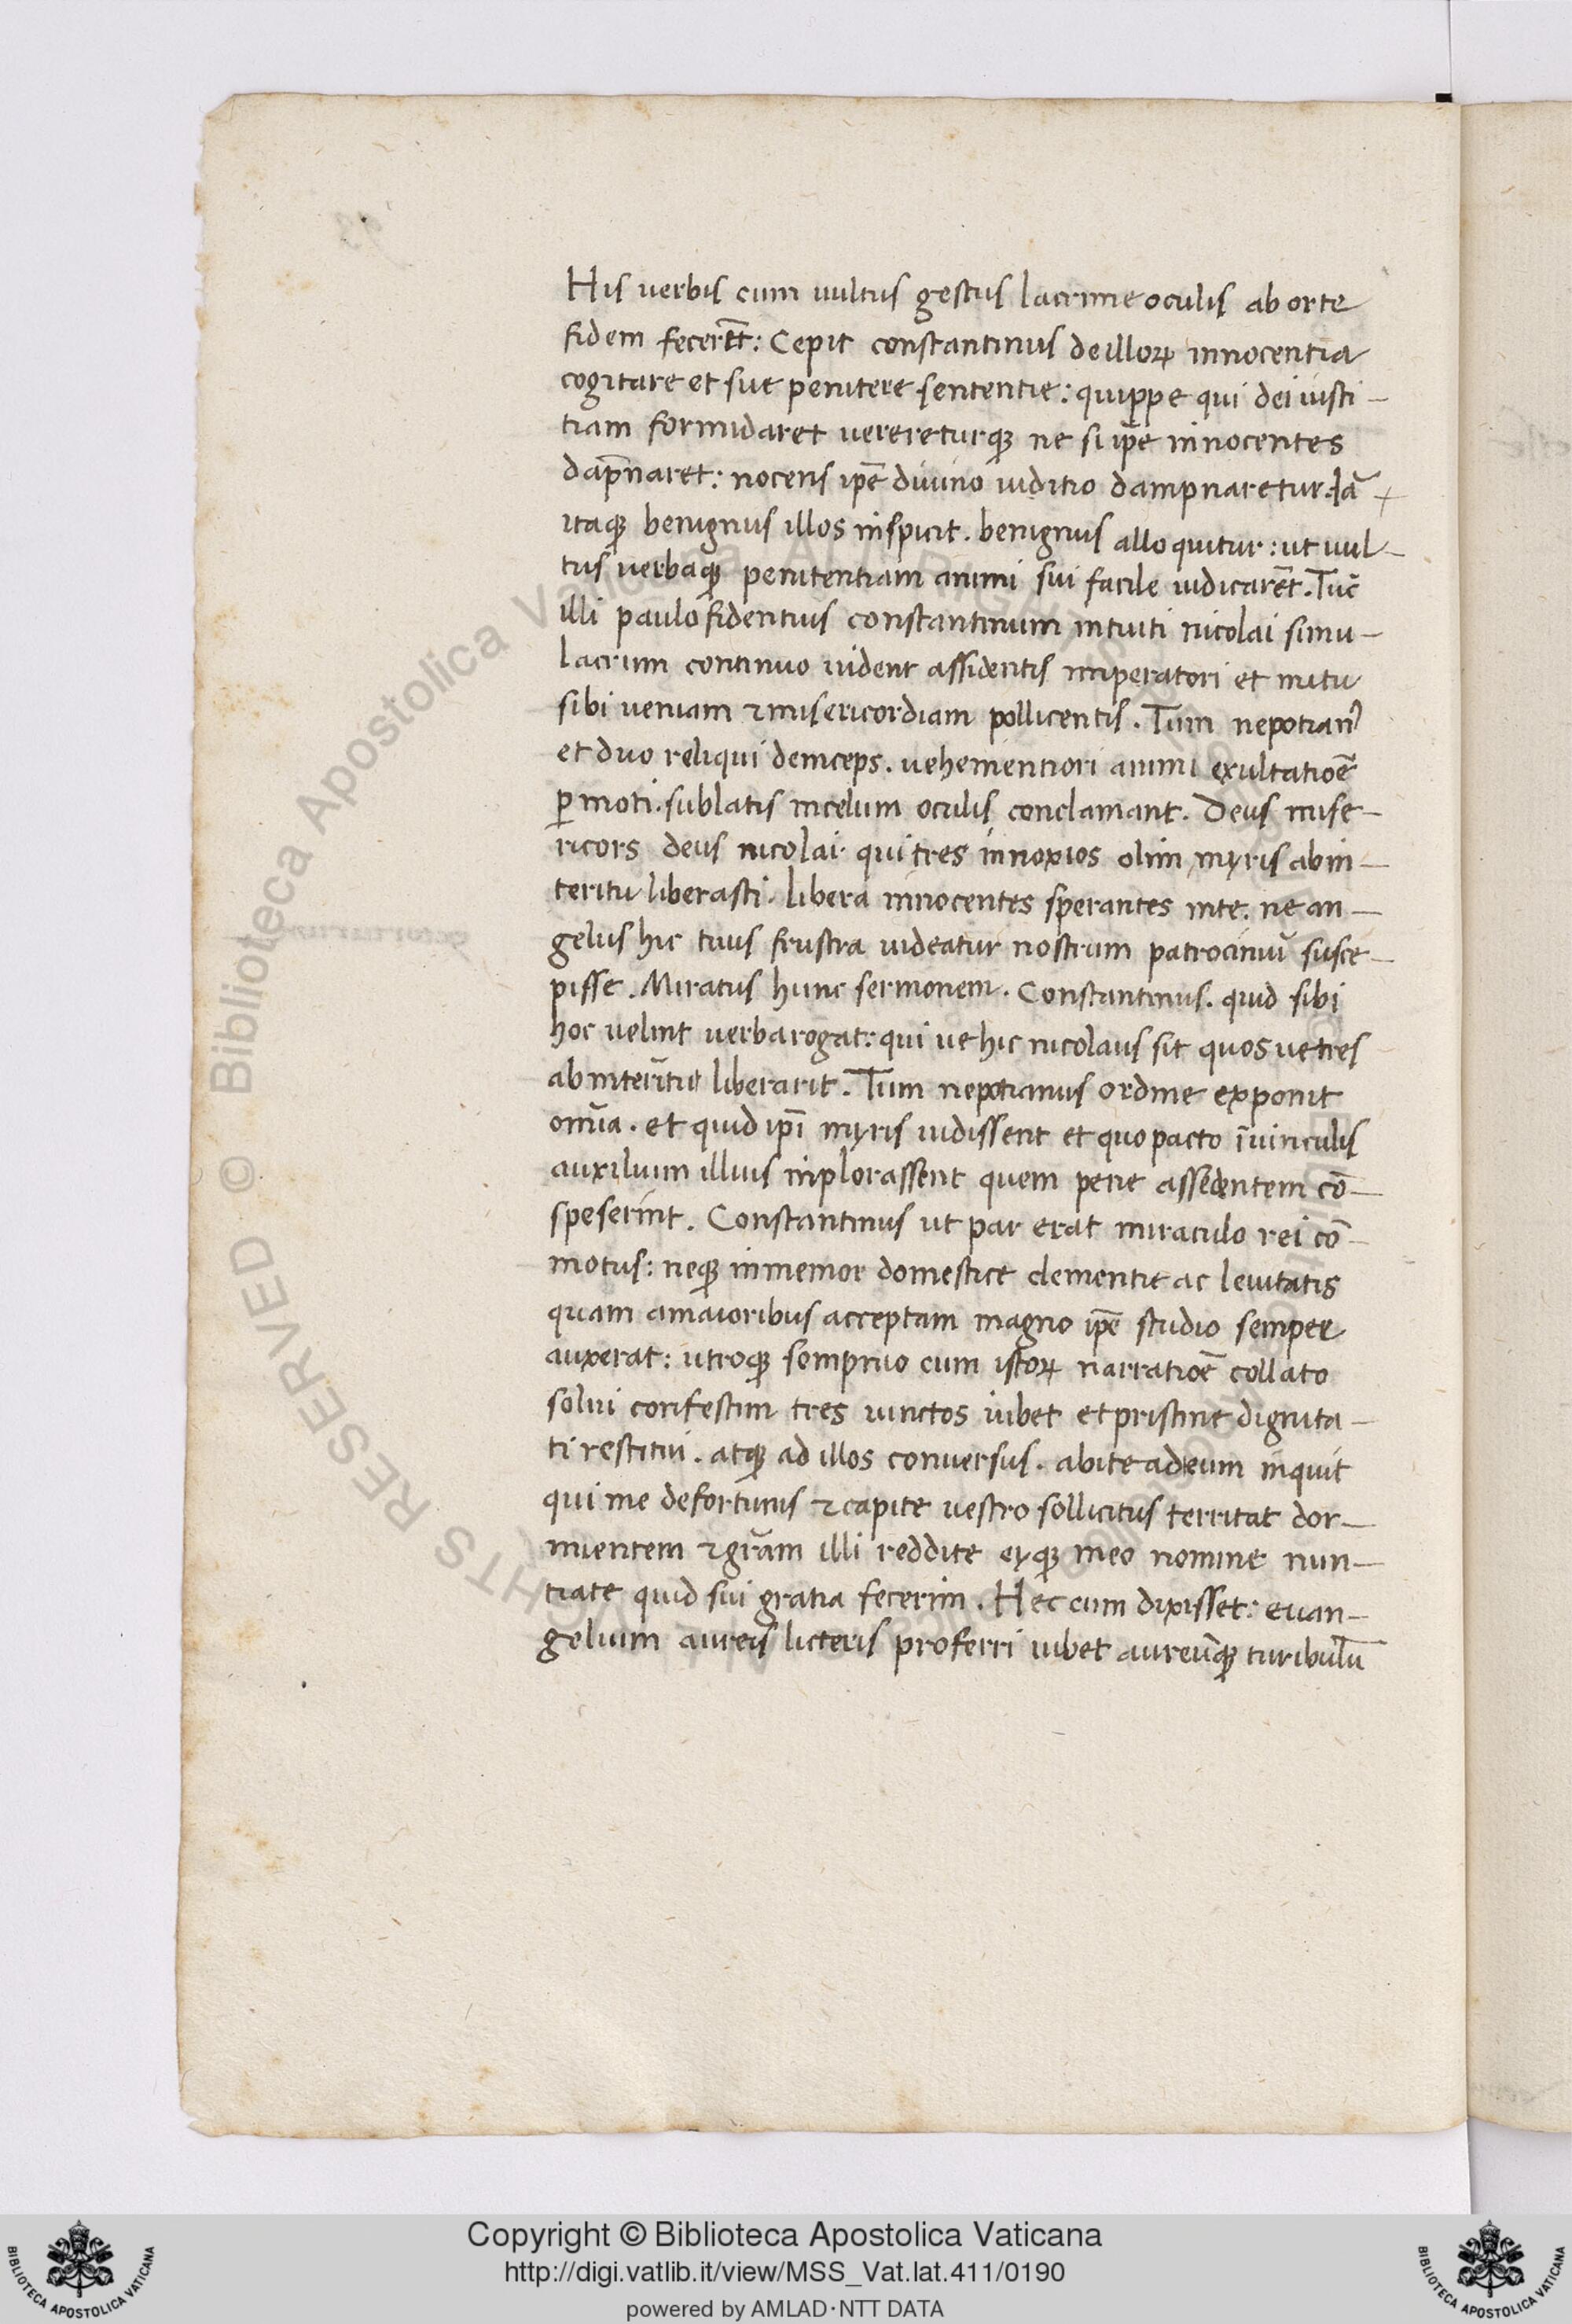 His uerbis cum uultus gestus lacrime oculis aborte
fidem fecerēt: Cepit constantinus de illoꝝ innocentia
cogitare et sue penitere sententie: quippe qui dei iusti-
tiam formidaret uerereturqꝫ ne si ip̄e innocentes
dap̄naret: nocens ip̄e diuino iuditio dampnaretur. Iā
itaqꝫ benignus illos inspicit. benignus alloquitur: ut uul-
tus uerbaqꝫ penitentiam animi sui facile iudicarēt. Tūc
illi paulo fidentius constantinum intuiti nicolai simu-
lacrum continuo uident assidentis imperatori et nutu
sibi ueniam ⁊ misericordiam pollicentis. Tum nepotianꝰ
et duo reliqui deinceps. uehementiori animi exultatiōe
ꝑmoti. sublatis in celum oculis conclamant. Deus mise-
ricors deus nicolai qui tres innoxios olim myris ab in-
teritu liberasti. libera innocentes sperantes in te. ne an-
gelus hic tuus frustra uideatur nostrum patrociniū susce-
pisse. Miratus hunc sermonem. Constantinus. quid sibi
hoc uelint uerba rogat: qui ue hic nicolaus sit quos ue tres
ab interitu liberarit. Tum nepotianus ordine exponit
om̄ia. et quid ip̄i myris uidissent et quo pacto ī uinculis
auxilium illius inplorassent quem pene assedentem cō-
speserint. Constantinus ut par erat miraculo rei cō-
motus: neqꝫ inmemor domestice clementie ac leuitatis
quam a maioribus acceptam magno ip̄e studio semper
auxerat: utroqꝫ sompnio cum istoꝝ narratiōe collato
solui confestim tres uinctos iubet et pristine dignita-
ti restitui. atqꝫ ad illos conuersus. abite ad eum inquit
qui me de fortunis ⁊ capite uestro sollicitus territat dor-
mientem ⁊ gr̄am illi reddite eyqꝫ meo nomine nun-
tiate quid sui gratia fecerim. Hec cum dixisset: euan-
gelium aureis licteris proferri iubet aureūqꝫ turibulū
Copyright © Biblioteca Apostolica Vaticana
http://digi.vatlib.it/view/MSS_Vat.lat.411/0190
powered by AMLAD·NTT DATA